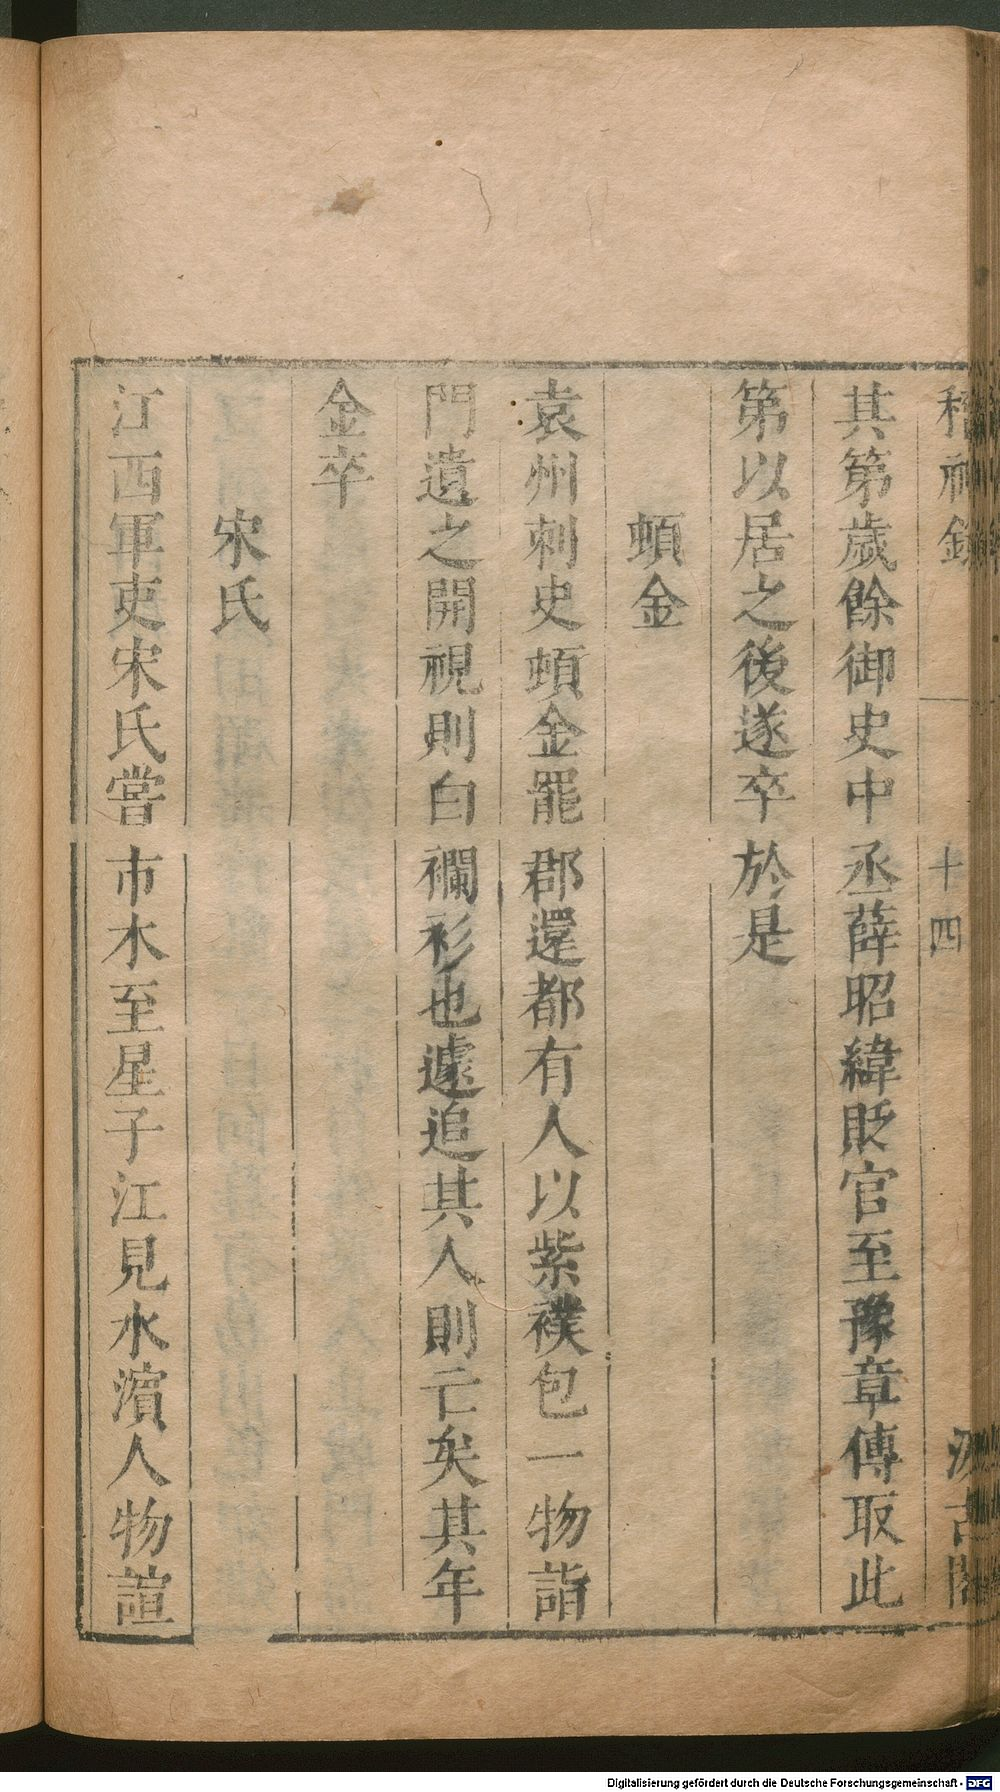 稽神錄 十四 汲古閣
其第歲餘御史中丞薛昭緯貶官至豫章傅取此
第以居之後遂卒於是
頓金
袁州刺史頓金罷郡還都有人以紫襆包一物詣
門遺之開視則白襴衫也遽追其人則亡矣其年
金卒
宋氏
江西軍吏宋氏嘗市木至星子江見水濱人物諠
Digitalisierung gefördert durch die Deutsche Forschungsgemeinschaft - DFG